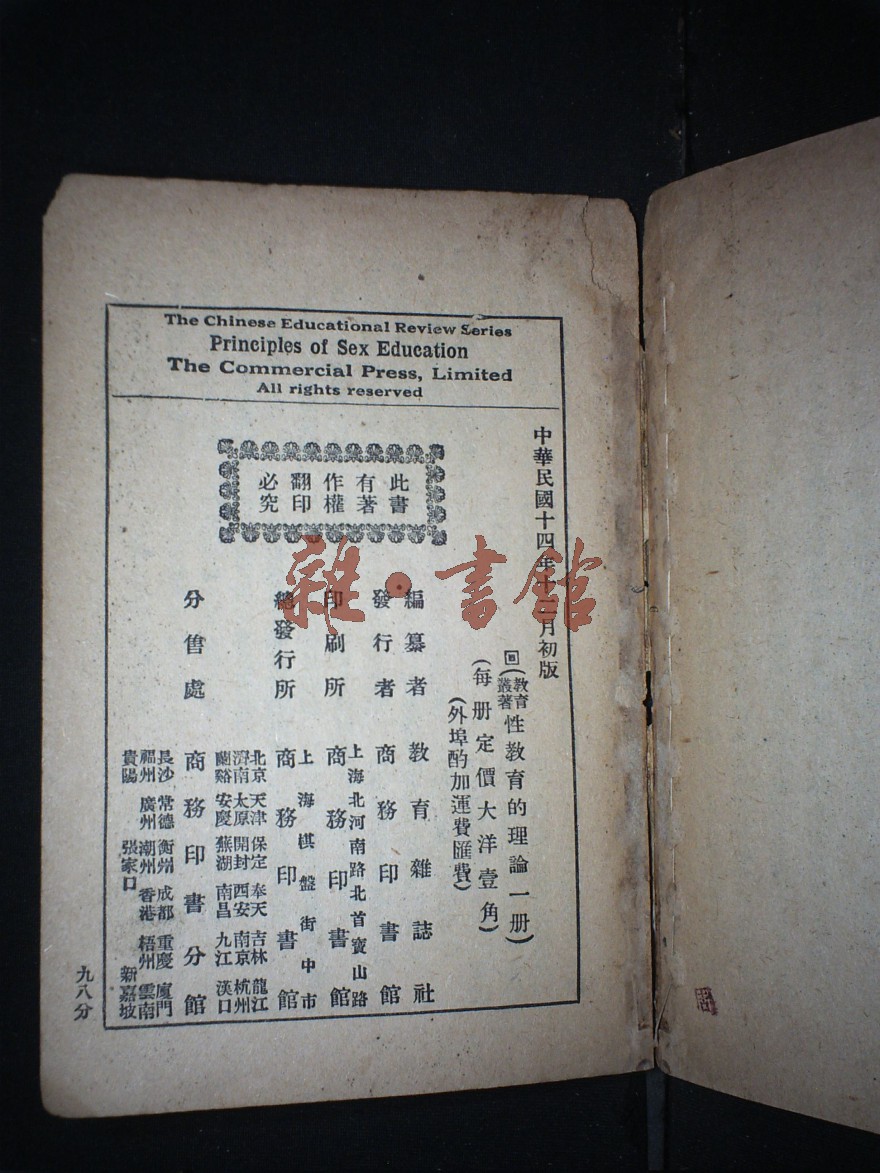 The Chinese Educational Review Series
Principles of Sex Education
The Commercial Press, Limited
All rights reserved
中華民國十四年十一月初版
(教育叢著 性教育的理論一册)
(每册定價大洋壹角)
(外埠酌加運費匯費)
此書
有著
作權
翻印
必究
編纂者 教育雜誌社
發行者 商務印書館
上海北河南路北首寶山路
印刷所 商務印書館
上海棋盤街中市
總發行所 商務印書館
北京 天津 保定 奉天 吉林 龍江
濟南 太原 開封 西安 南京 杭州
蘭谿 安慶 蕪湖 南昌 九江 漢口
分售處 商務印書分館
長沙 常德 衡州 成都 重慶 廈門
福州 廣州 潮州 香港 梧州 雲南
貴陽 張家口 新嘉坡
九八分
雜·書館